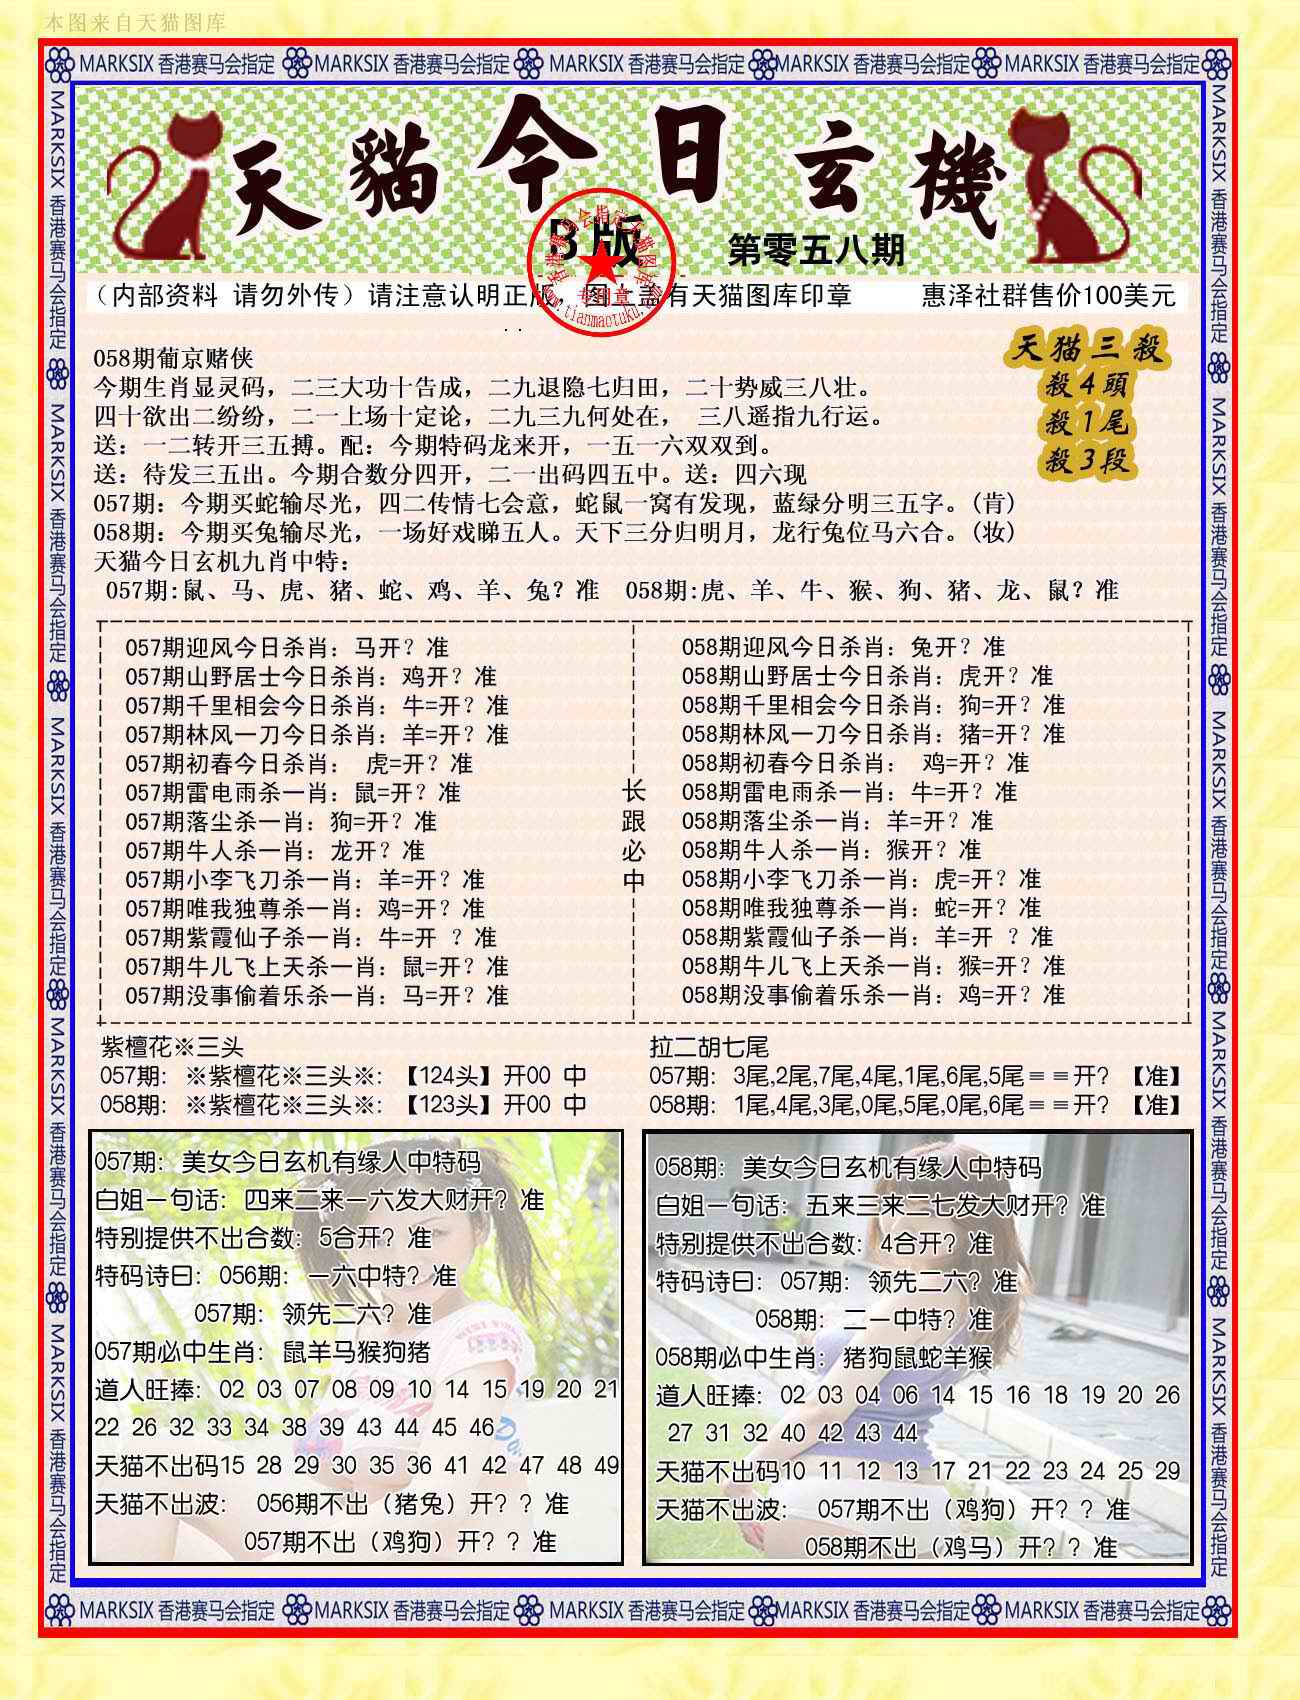 本图来自天猫图库
MARKSIX 香港赛马会指定 MARKSIX 香港赛马会指定 MARKSIX 香港赛马会指定 MARKSIX 香港赛马会指定 MARKSIX 香港赛马会指定
MARKSIX 香港赛马会指定 MARKSIX 香港赛马会指定 MARKSIX 香港赛马会指定 MARKSIX 香港赛马会指定 MARKSIX 香港赛马会指定
MARKSIX 香港赛马会指定 MARKSIX 香港赛马会指定 MARKSIX 香港赛马会指定 MARKSIX 香港赛马会指定 MARKSIX 香港赛马会指定
天貓今日玄機
B版
第零五八期
香港赛马会指定天猫图库
专用章
www.tianmaotuku.com
（内部资料 请勿外传）请注意认明正版，图上盖有天猫图库印章 惠泽社群售价100美元
天猫三殺
殺4頭
殺1尾
殺3段
058期葡京赌侠
今期生肖显灵码，二三大功十告成，二九退隐七归田，二十势威三八壮。
四十欲出二纷纷，二一上场十定论，二九三九何处在， 三八遥指九行运。
送：一二转开三五搏。配：今期特码龙来开，一五一六双双到。
送：待发三五出。今期合数分四开，二一出码四五中。送：四六现
057期：今期买蛇输尽光，四二传情七会意，蛇鼠一窝有发现，蓝绿分明三五字。（肯）
058期：今期买兔输尽光，一场好戏睇五人。天下三分归明月，龙行兔位马六合。（妆）
天猫今日玄机九肖中特：
057期:鼠、马、虎、猪、蛇、鸡、羊、兔？准 058期:虎、羊、牛、猴、狗、猪、龙、鼠？准
057期迎风今日杀肖：马开？准
057期山野居士今日杀肖：鸡开？准
057期千里相会今日杀肖：牛=开？准
057期林风一刀今日杀肖：羊=开？准
057期初春今日杀肖： 虎=开？准
057期雷电雨杀一肖：鼠=开？准
057期落尘杀一肖：狗=开？准
057期牛人杀一肖：龙开？准
057期小李飞刀杀一肖：羊=开？准
057期唯我独尊杀一肖：鸡=开？准
057期紫霞仙子杀一肖：牛=开 ？准
057期牛儿飞上天杀一肖：鼠=开？准
057期没事偷着乐杀一肖：马=开？准
长
跟
必
中
058期迎风今日杀肖：兔开？准
058期山野居士今日杀肖：虎开？准
058期千里相会今日杀肖：狗=开？准
058期林风一刀今日杀肖：猪=开？准
058期初春今日杀肖： 鸡=开？准
058期雷电雨杀一肖：牛=开？准
058期落尘杀一肖：羊=开？准
058期牛人杀一肖：猴开？准
058期小李飞刀杀一肖：虎=开？准
058期唯我独尊杀一肖：蛇=开？准
058期紫霞仙子杀一肖：羊=开 ？准
058期牛儿飞上天杀一肖：猴=开？准
058期没事偷着乐杀一肖：鸡=开？准
紫檀花※三头
057期：※紫檀花※三头※：【124头】开00 中
058期：※紫檀花※三头※：【123头】开00 中
拉二胡七尾
057期：3尾,2尾,7尾,4尾,1尾,6尾,5尾＝＝开？【准】
058期：1尾,4尾,3尾,0尾,5尾,0尾,6尾＝＝开？【准】
057期：美女今日玄机有缘人中特码
白姐一句话：四来二来一六发大财开？准
特别提供不出合数：5合开？准
特码诗曰：056期：一六中特？准
057期：领先二六？准
057期必中生肖：鼠羊马猴狗猪
道人旺捧：02 03 07 08 09 10 14 15 19 20 21
22 26 32 33 34 38 39 43 44 45 46
天猫不出码15 28 29 30 35 36 41 42 47 48 49
天猫不出波： 056期不出（猪兔）开？？准
057期不出（鸡狗）开？？准
058期：美女今日玄机有缘人中特码
白姐一句话：五来三来二七发大财开？准
特别提供不出合数：4合开？准
特码诗曰：057期：领先二六？准
058期：二一中特？准
058期必中生肖：猪狗鼠蛇羊猴
道人旺捧：02 03 04 06 14 15 16 18 19 20 26
27 31 32 40 42 43 44
天猫不出码10 11 12 13 17 21 22 23 24 25 29
天猫不出波： 057期不出（鸡狗）开？？准
058期不出（鸡马）开？？准
MARKSIX 香港赛马会指定 MARKSIX 香港赛马会指定 MARKSIX 香港赛马会指定 MARKSIX 香港赛马会指定 MARKSIX 香港赛马会指定